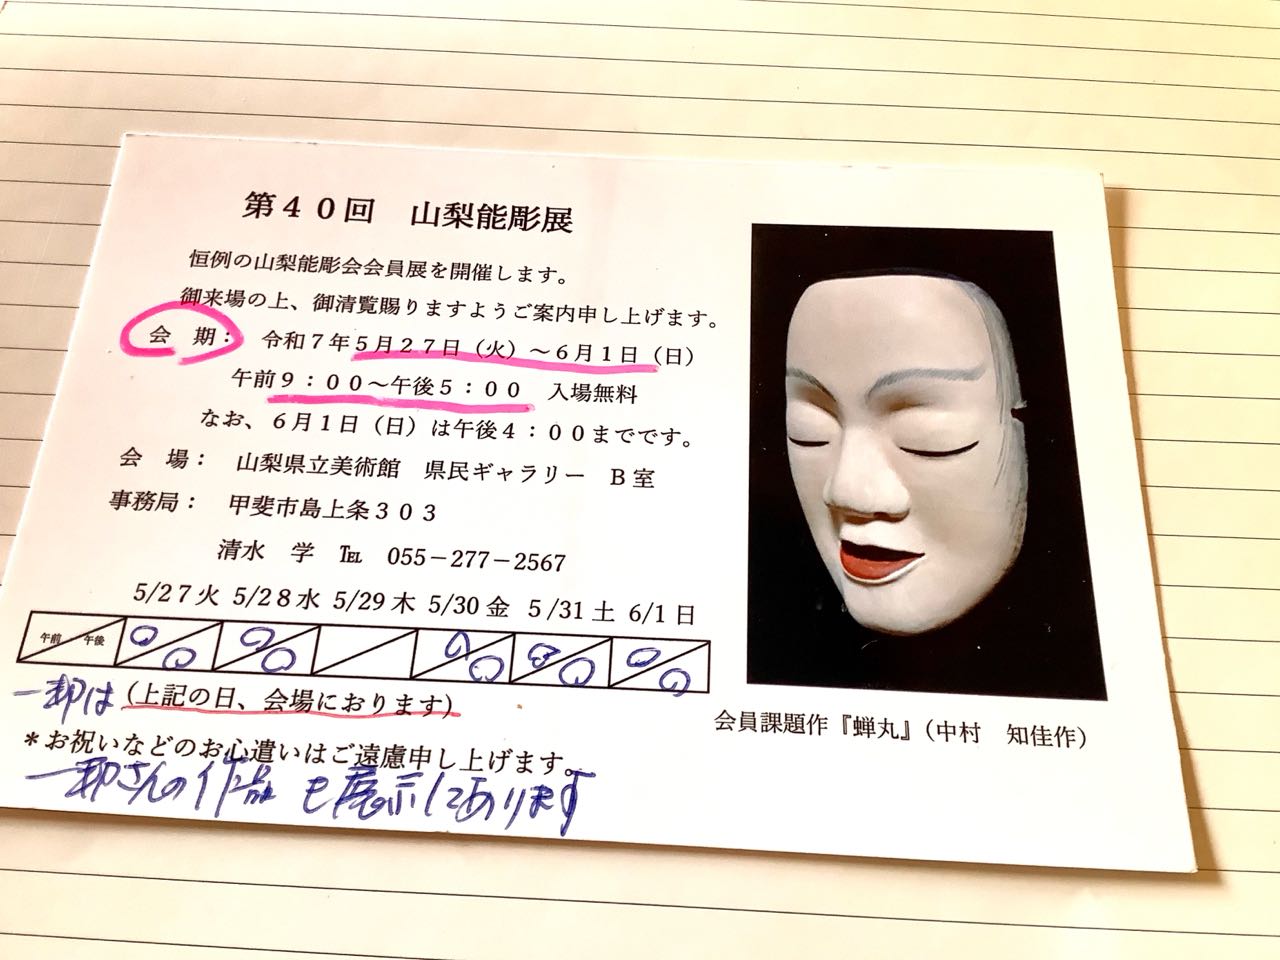 第４０回　山梨能彫展
恒例の山梨能彫会会員展を開催します。
御来場の上、御清覧賜りますようご案内申し上げます。
会　期：　令和７年５月２７日（火）～６月１日（日）
午前９：００～午後５：００　入場無料
なお、６月１日（日）は午後４：００までです。
会　場：　山梨県立美術館　県民ギャラリー　Ｂ室
事務局：　甲斐市島上条３０３
清水　学　℡　055－277－2567
5/２７火 5/２８水 5/２９木 5/30 金 ５/31 土 6/1 日
午前 午後
一郎は（上記の日、会場におります）
＊お祝いなどのお心遣いはご遠慮申し上げます。
一郎さんの作品も展示してあります
会員課題作『蝉丸』（中村　知佳作）